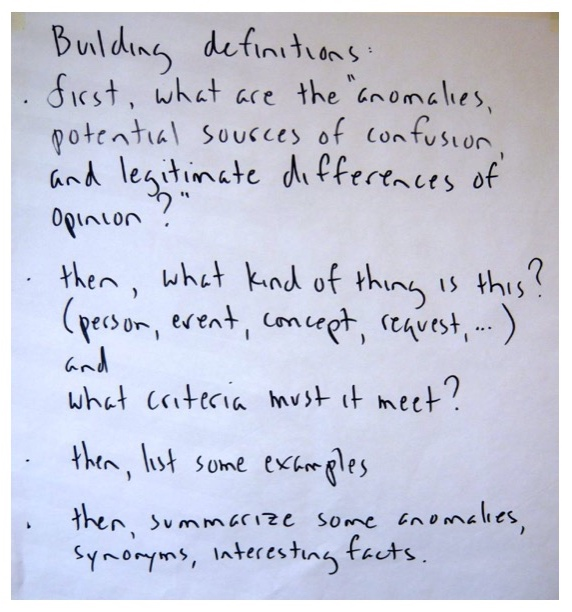 Building definitions:
· first, what are the "anomalies,
potential sources of confusion,
and legitimate differences of
opinion?"
· then, what kind of thing is this?
(person, event, concept, request, ...)
and
what criteria must it meet?
· then, list some examples
· then, summarize some anomalies,
synonyms, interesting facts.